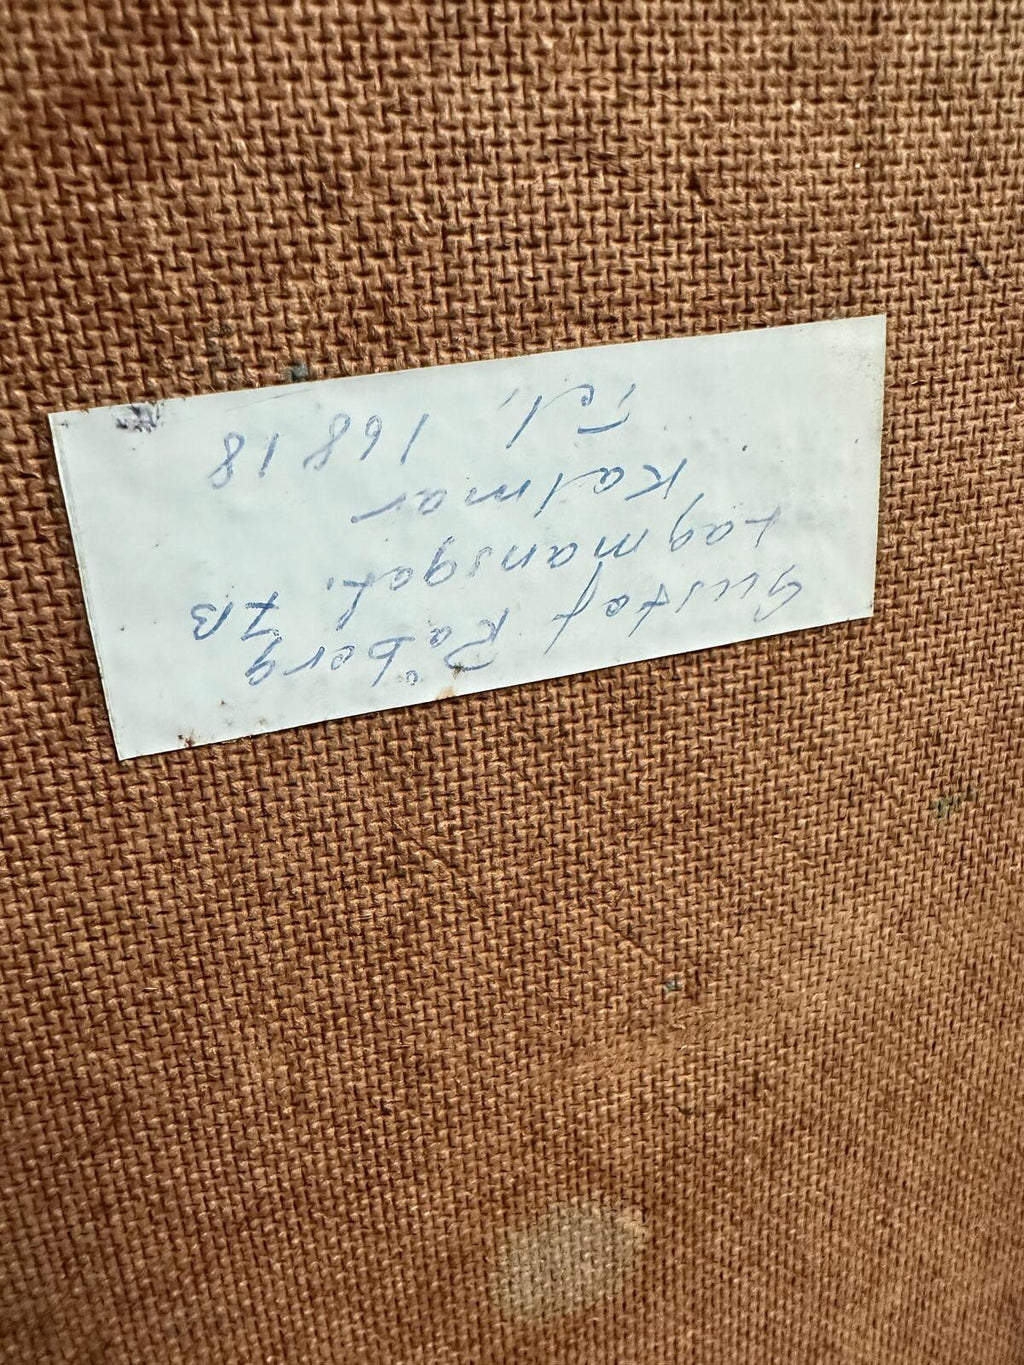 Gustaf Råberg
Lagmansgat. 7B
Kalmar
Tel, 16818